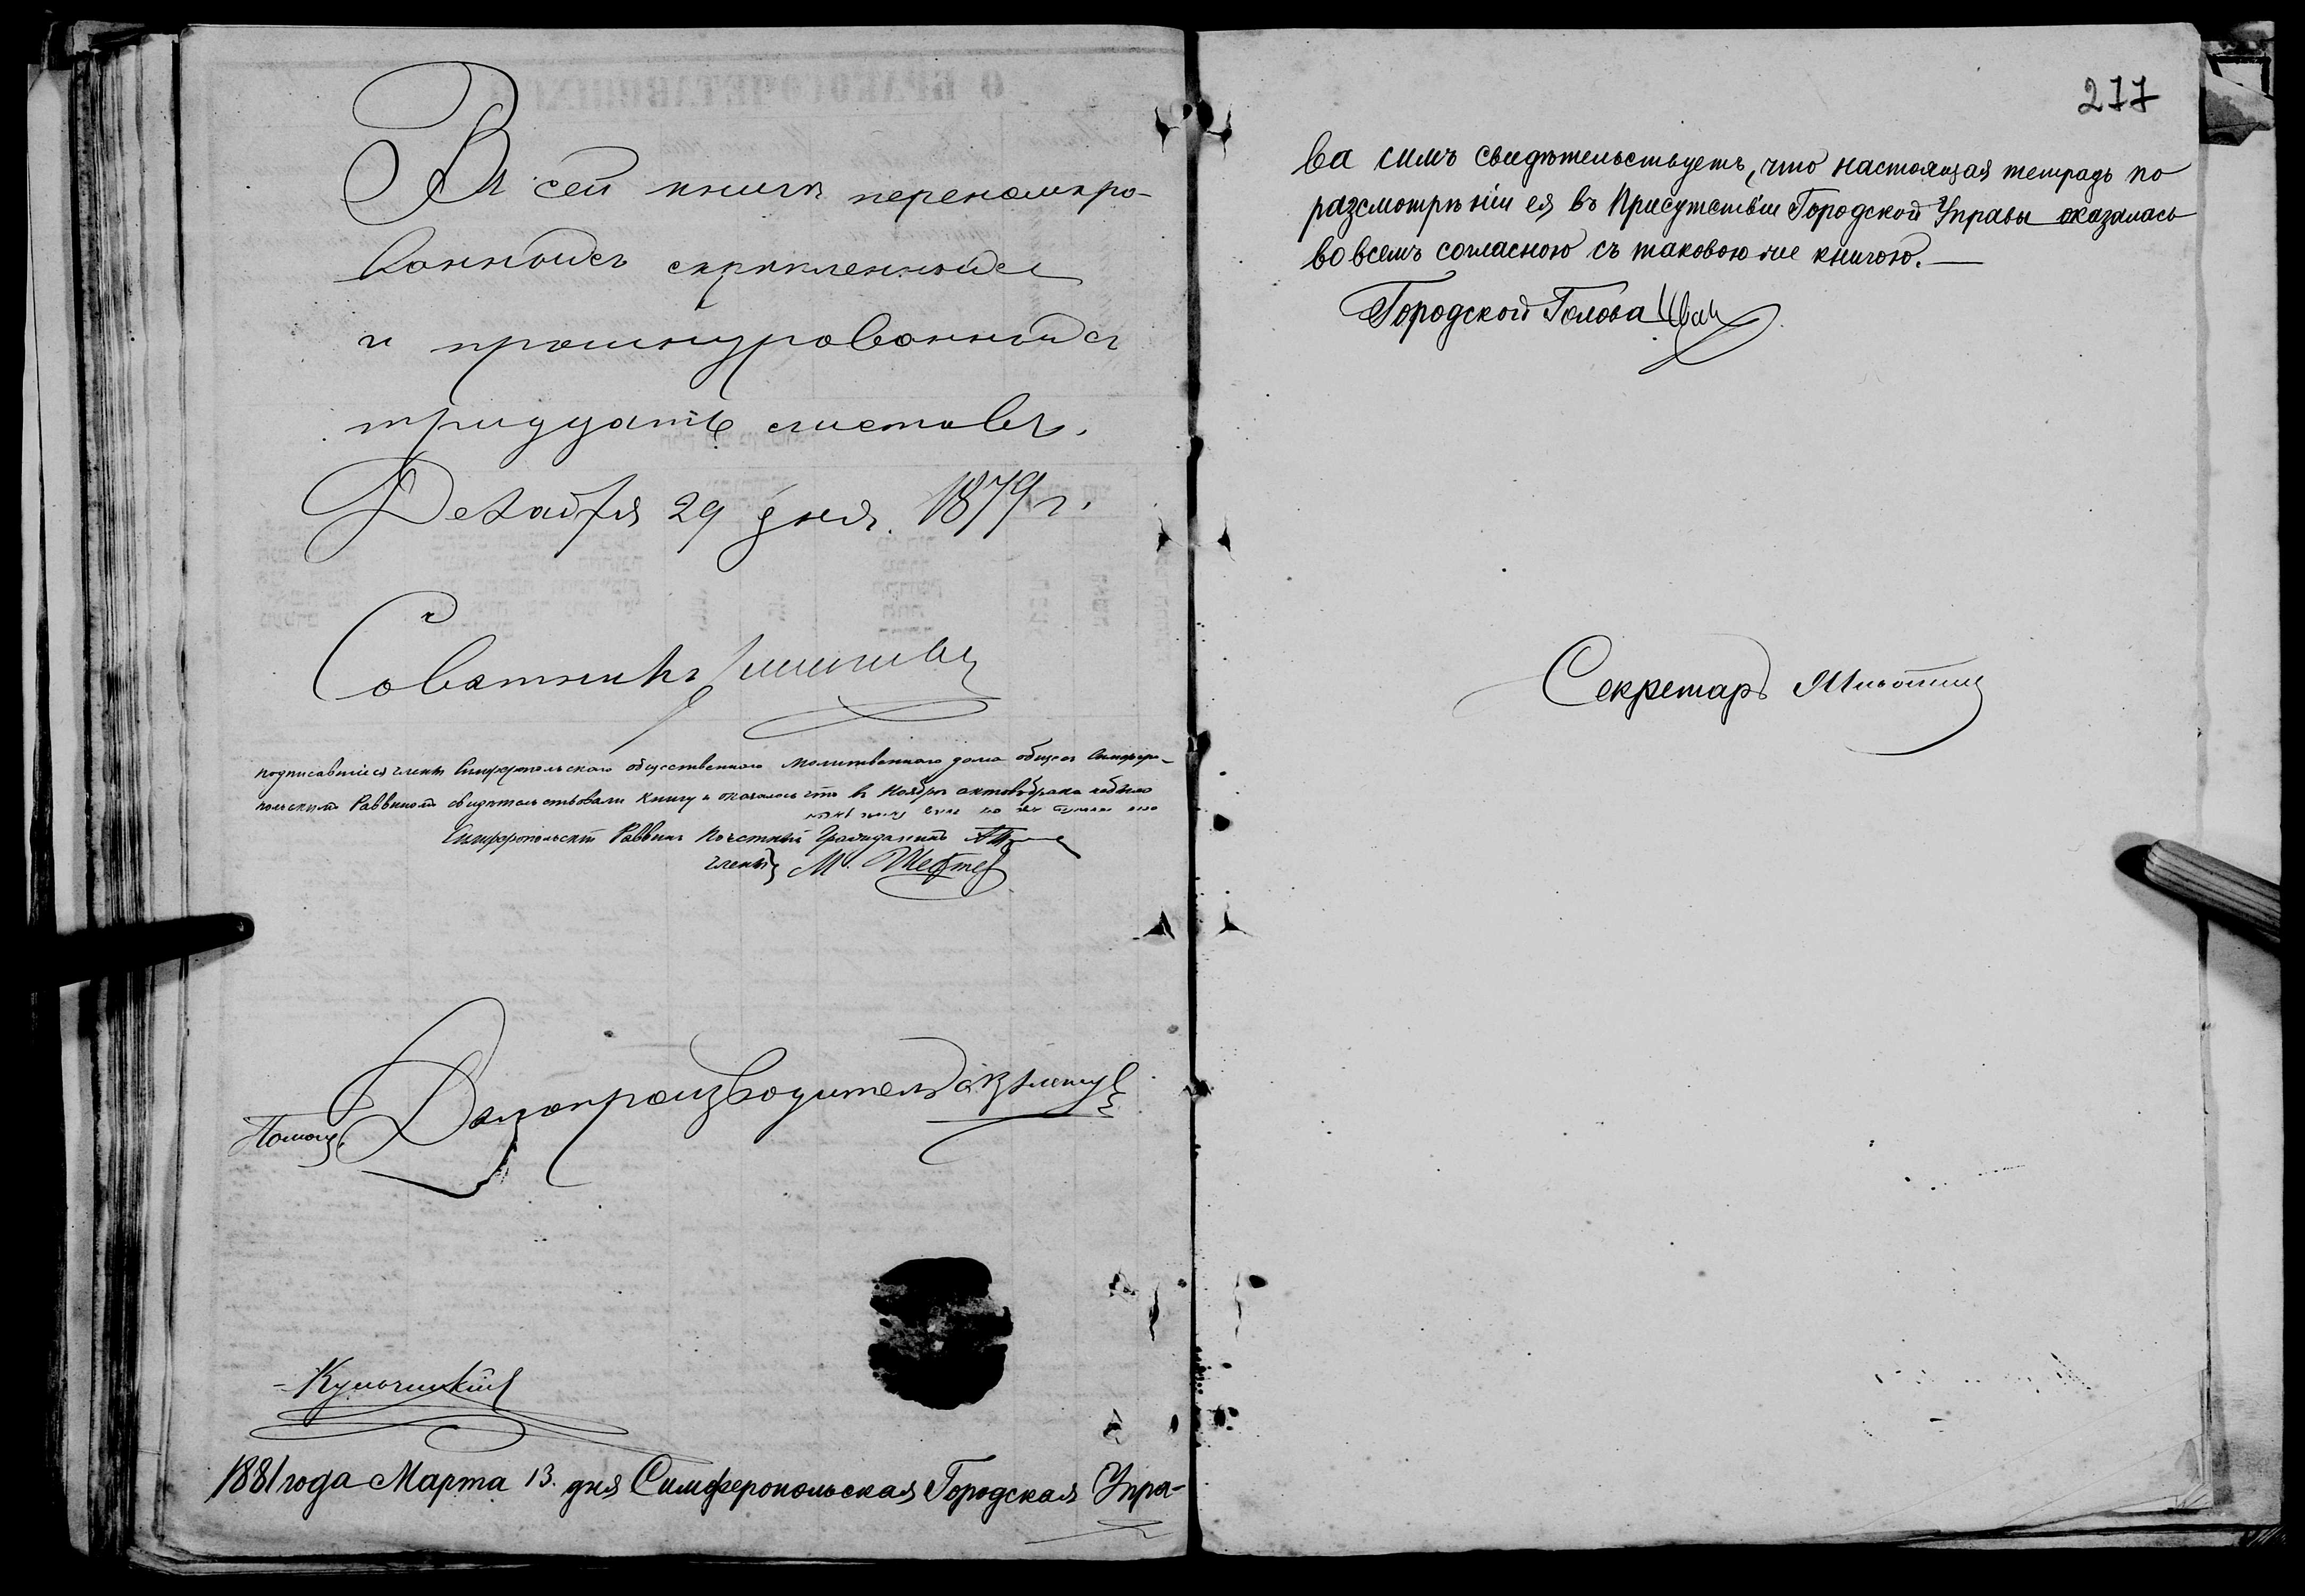 Въ сей книгѣ перенамиро-
ванныхъ скрѣпленныхъ
и прошнурованныхъ
тридцать листовъ.
Декабря 29 дня. 1879 г.
Совѣтникъ
подписавшіеся члены Симферопольскаго общественнаго Молитвеннаго дома общаго Симферо-
польскимъ Раввиномъ свидѣтельствовали книгу и оказалось что въ Ноябрѣ
Симферопольскій Раввинъ Почетный Гражданинъ
члены М. Шефтел
Дѣлопроизводитель
Помощ.
Кульчицкій
1881 года Марта 13. дня Симферопольская Городская Упра-
277
ва симъ свидѣтельствуетъ, что настоящая тетрадь по
разсмотрѣніи ея въ Присутствіи Городской Управы оказалась
во всемъ согласною съ таковою же книгою.
Городской Голова Иван
Секретарь